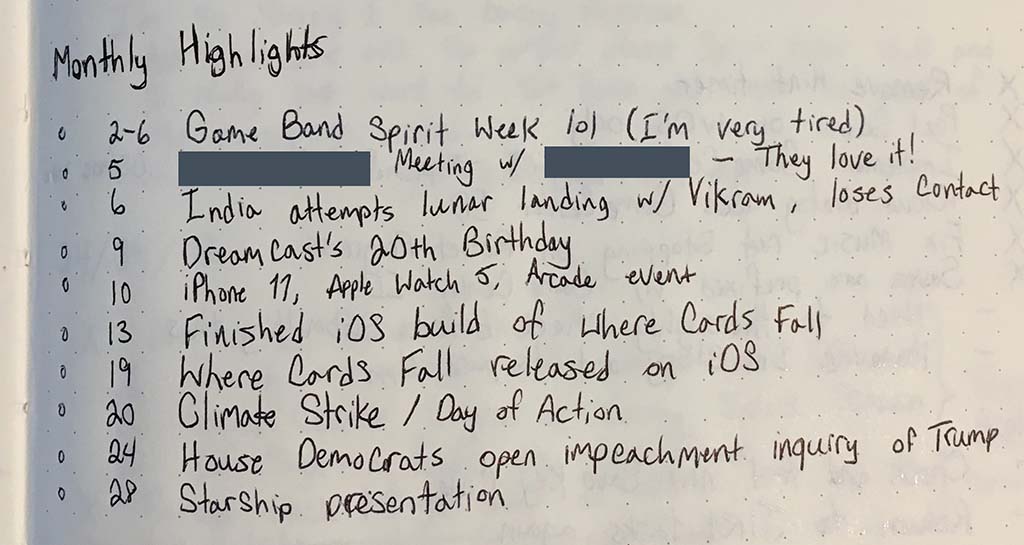 Monthly Highlights
o 2-6 Game Band Spirit Week lol (I'm very tired)
o 5 Meeting w/ — They love it!
o 6 India attempts lunar landing w/ Vikram, loses contact
o 9 Dreamcast's 20th Birthday
o 10 iPhone 11, Apple Watch 5, Arcade event
o 13 Finished iOS build of Where Cards Fall
o 19 Where Cards Fall released on iOS
o 20 Climate Strike / Day of Action
o 24 House Democrats open impeachment inquiry of Trump
o 28 Starship presentation